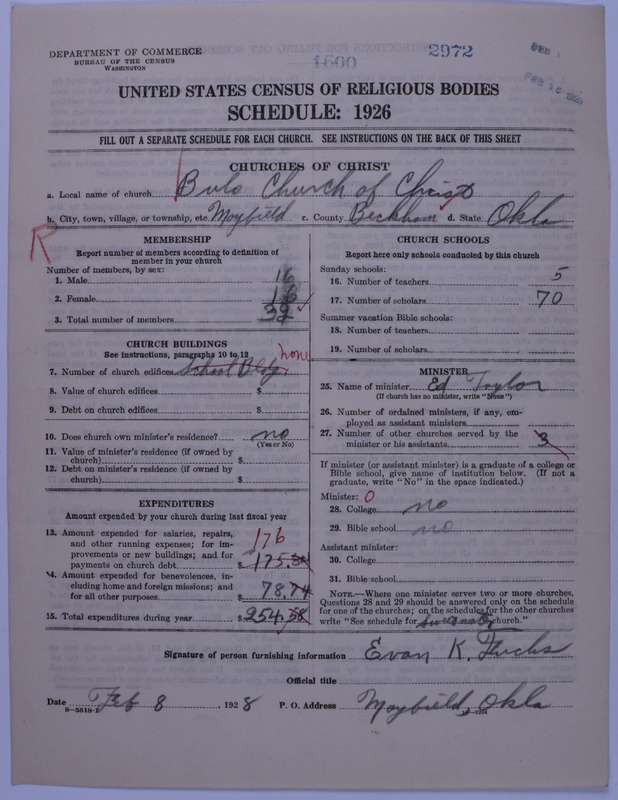 DEPARTMENT OF COMMERCE
BUREAU OF THE CENSUS
WASHINGTON
1600
2972
UNITED STATES CENSUS OF RELIGIOUS BODIES
SCHEDULE: 1926
FILL OUT A SEPARATE SCHEDULE FOR EACH CHURCH. SEE INSTRUCTIONS ON THE BACK OF THIS SHEET
CHURCHES OF CHRIST
a. Local name of church Bulo Church of Christ
b. City, town, village, or township, etc. Mayfield c. County Beckham d. State Okla
R
MEMBERSHIP
Report number of members according to definition of
member in your church
Number of members, by sex:
1. Male 16
2. Female 16
3. Total number of members 32
CHURCH BUILDINGS
See instructions, paragraphs 10 to 12
none
7. Number of church edifices School Bldg
8. Value of church edifices $
9. Debt on church edifices $
10. Does church own minister's residence? no
(Yes or No)
11. Value of minister's residence (if owned by
church) $
12. Debt on minister's residence (if owned by
church) $
EXPENDITURES
Amount expended by your church during last fiscal year
13. Amount expended for salaries, repairs,
and other running expenses; for im-
provements or new buildings; and for
payments on church debt 176 $ 175.84
14. Amount expended for benevolences, in-
cluding home and foreign missions; and
for all other purposes $ 78.74
15. Total expenditures during year $ 254.58
CHURCH SCHOOLS
Report here only schools conducted by this church
Sunday schools:
16. Number of teachers 5
17. Number of scholars 70
Summer vacation Bible schools:
18. Number of teachers
19. Number of scholars
MINISTER
25. Name of minister Ed Taylor
(If church has no minister, write "None")
26. Number of ordained ministers, if any, em-
ployed as assistant ministers
27. Number of other churches served by the
minister or his assistants 3
If minister (or assistant minister) is a graduate of a college or
Bible school, give name of institution below. (If not a
graduate, write "No" in the space indicated.)
Minister: 0
28. College no
29. Bible school no
Assistant minister:
30. College
31. Bible school
NOTE.—Where one minister serves two or more churches,
Questions 28 and 29 should be answered only on the schedule
for one of the churches; on the schedules for the other churches
write "See schedule for church."
Signature of person furnishing information Evan K. Fuchs
Official title
Date Feb 8, 1928 P. O. Address Mayfield, Okla
8-5518-1